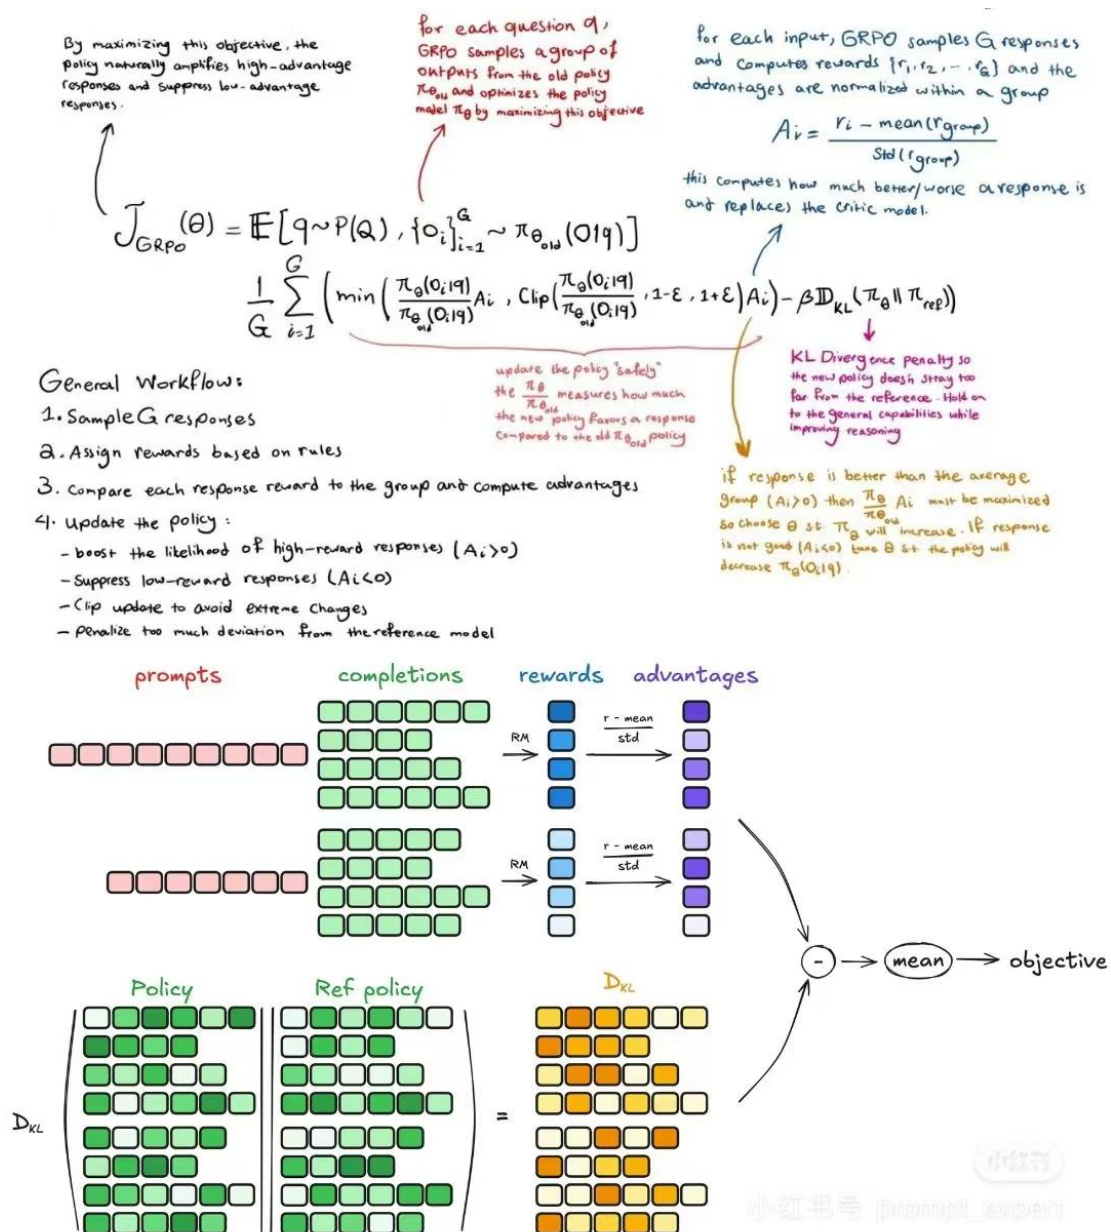 By maximizing this objective, the
policy naturally amplifies high-advantage
responses and suppress low-advantage
responses.
for each question q,
GRPO samples a group of
outputs from the old policy
πθold and optimizes the policy
model πθ by maximizing this objective
for each input, GRPO samples G responses
and computes rewards {r1, r2, ..., rG} and the
advantages are normalized within a group
Ai = (ri - mean(rgroup)) / Std(rgroup)
this computes how much better/worse a response is
and replaces the critic model.
JGRPO(θ) = E[q~P(Q), {Oi}^G i=1 ~ πθold(O|q)]
1/G Σ^G i=1 (min(πθ(Oi|q)/πθold(Oi|q) Ai, Clip(πθ(Oi|q)/πθold(Oi|q), 1-ε, 1+ε)Ai) - βDKL(πθ||πref))
update the policy "safely"
the πθ/πθold measures how much
the new policy favors a response
compared to the old πθold policy
KL Divergence penalty so
the new policy doesn stray too
far from the reference. Hold on
to the general capabilities while
improving reasoning
if response is better than the average
group (Ai>0) then πθ/πθold Ai must be maximized
so choose θ st. πθ will increase. If response
is not good (Ai<0) tune θ st the policy will
decrease πθ(Oi|q).
General Workflow:
1. Sample G responses
2. Assign rewards based on rules
3. Compare each response reward to the group and compute advantages
4. Update the policy:
- boost the likelihood of high-reward responses (Ai>0)
- Suppress low-reward responses (Ai<0)
- Clip update to avoid extreme changes
- penalize too much deviation from the reference model
prompts completions rewards advantages
RM
r - mean
std
RM
r - mean
std
- mean objective
Policy Ref policy DKL
DKL =
小红书号 prompt_expert